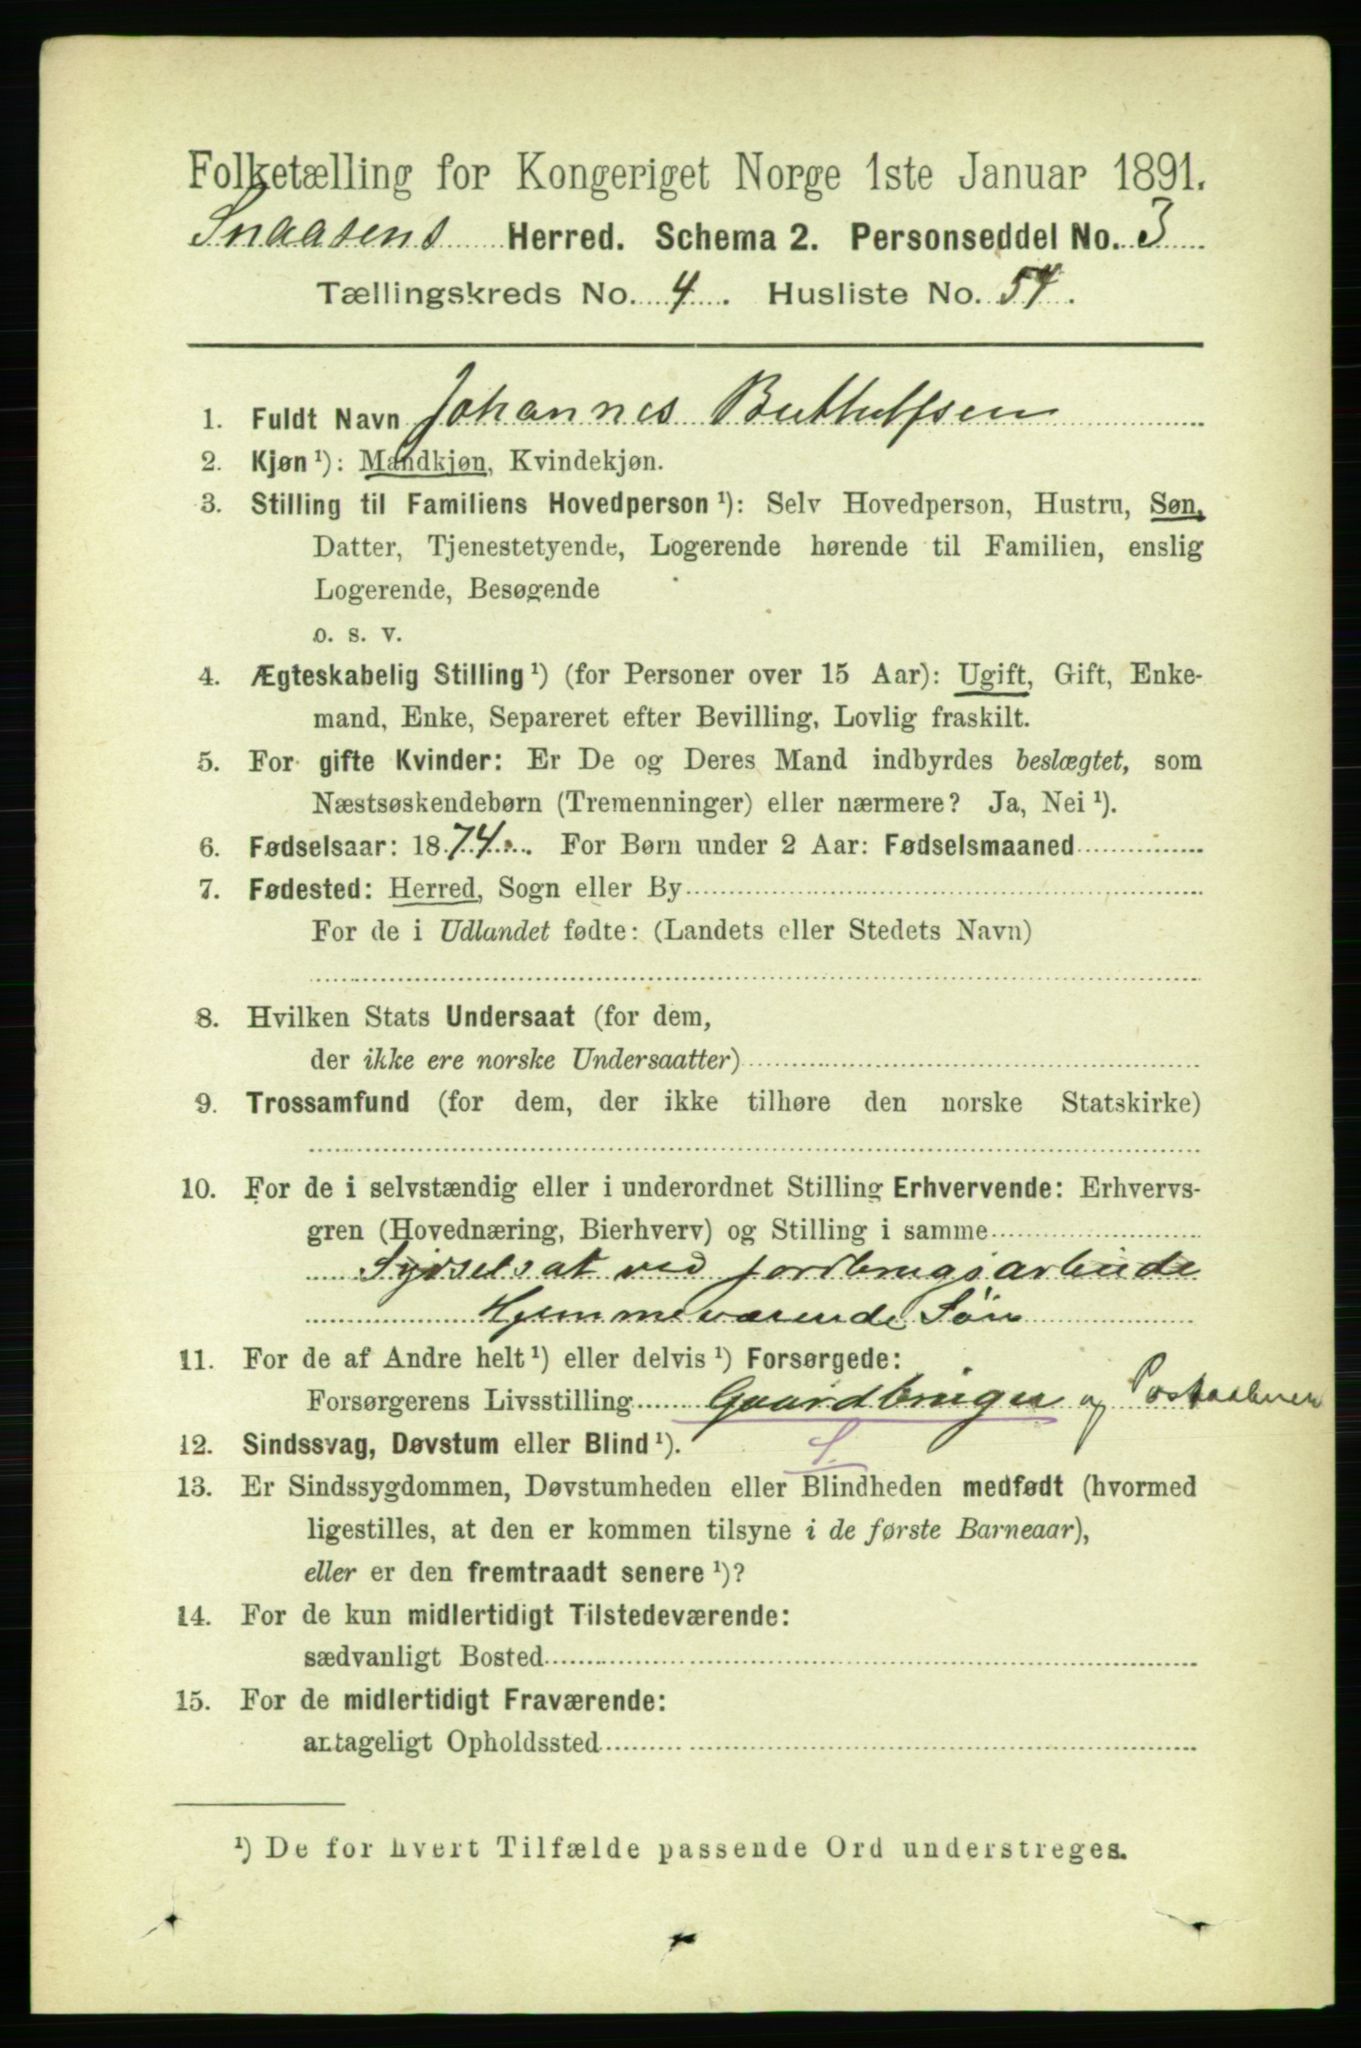 Folketælling for Kongeriget Norge 1ste Januar 1891.
Snaasens Herred. Schema 2. Personseddel No. 3
Tællingskreds No. 4. Husliste No. 54.
1. Fuldt Navn Johannes Buthulfsen
2. Kjøn ¹): Mandkjøn, Kvindekjøn.
3. Stilling til Familiens Hovedperson ¹): Selv Hovedperson, Hustru, Søn,
Datter, Tjenestetyende, Logerende hørende til Familien, enslig
Logerende, Besøgende
o. s. v.
4. Ægteskabelig Stilling ¹) (for Personer over 15 Aar): Ugift, Gift, Enke-
mand, Enke, Separeret efter Bevilling, Lovlig fraskilt.
5. For gifte Kvinder: Er De og Deres Mand indbyrdes beslægtet, som
Næstsøskendebørn (Tremenninger) eller nærmere? Ja, Nei ¹).
6. Fødselsaar: 1874. For Børn under 2 Aar: Fødselsmaaned
7. Fødested: Herred, Sogn eller By
For de i Udlandet fødte: (Landets eller Stedets Navn)
8. Hvilken Stats Undersaat (for dem,
der ikke ere norske Undersaatter)
9. Trossamfund (for dem, der ikke tilhøre den norske Statskirke)
10. For de i selvstændig eller i underordnet Stilling Erhvervende: Erhvervs-
gren (Hovednæring, Bierhverv) og Stilling i samme
Sysselsat ved jordbrugsarbeide
Hjemmeværende Søn
11. For de af Andre helt ¹) eller delvis ¹) Forsørgede:
Forsørgerens Livsstilling Gaardbruger og Postaabner
12. Sindssvag, Døvstum eller Blind ¹). S.
13. Er Sindssygdommen, Døvstumheden eller Blindheden medfødt (hvormed
ligestilles, at den er kommen tilsyne i de første Barneaar),
eller er den fremtraadt senere ¹)?
14. For de kun midlertidigt Tilstedeværende:
sædvanligt Bosted
15. For de midlertidigt Fraværende:
antageligt Opholdssted
¹) De for hvert Tilfælde passende Ord understreges.